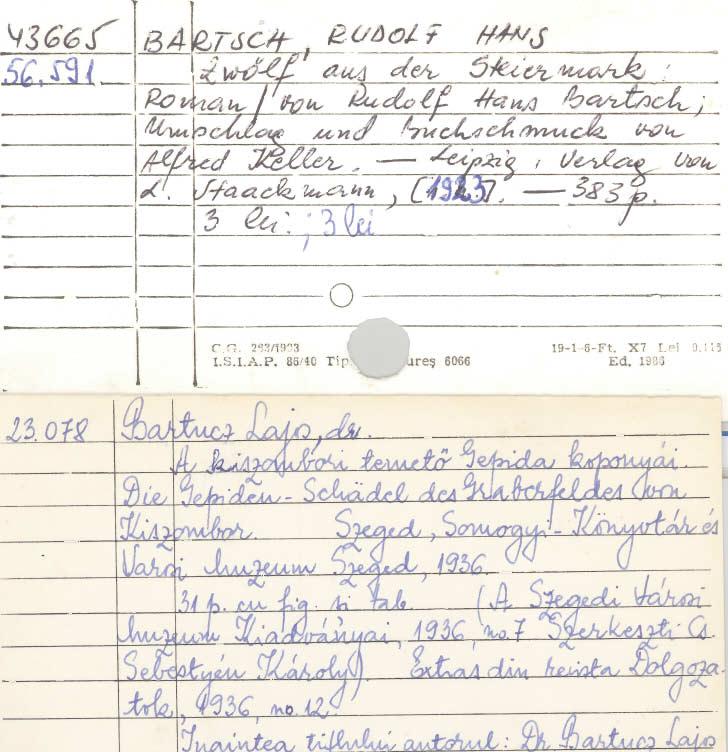 43665 BARTSCH, RUDOLF HANS
56.591 Zwölf aus der Steiermark:
Roman / von Rudolf Hans Bartsch;
Umschlag und Buchschmuck von
Alfred Keller. — Leipzig, Verlag von
L. Staackmann, [1923]. — 383 p.
3 lei.; 3 lei
C.G. 293/1933
I.S.I.A.P. 86/40 Tip ureş 6066
19-1-6-Ft. X7 Lei 0.115
Ed. 1986
23.078 Bartucz Lajos, dr.
A kiszombori temető Gepida koponyái.
Die Gepiden-Schädel des Graberfeldes von
Kiszombor. Szeged, Somogyi-Könyvtár és
Városi Muzeum Szeged, 1936.
31 p. cu fig. si tab. (A Szegedi Városi
Muzeum Kiadványai, 1936, no. 7 Szerkeszti Cs.
Sebestyén Károly). Extras din reista Dolgoza-
tok, 1936, no. 12.
Inaintea titlului autorul: Dr. Bartucz Lajos